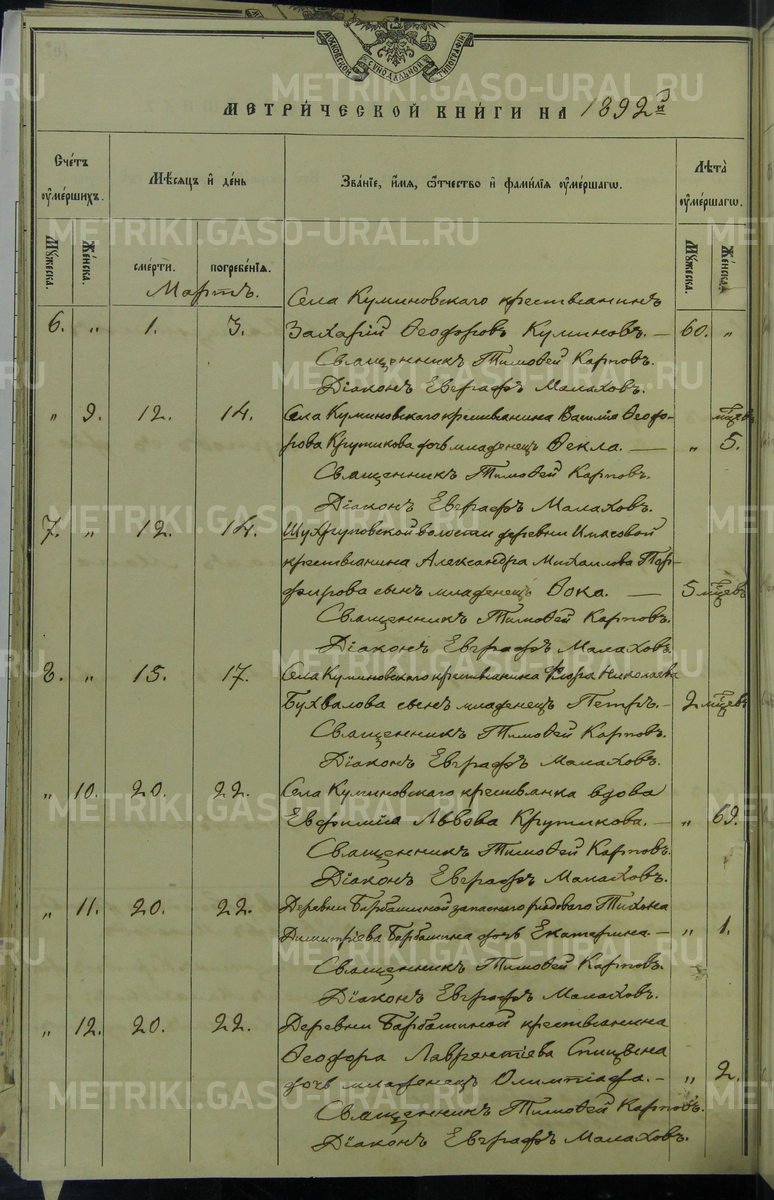 МОСКОВСКОЙ СУНОДАЛЬНОЙ ТИПОГРАФІИ
МЕТРИ́ЧЕСКОЙ КНИ́ГИ НА 1892й
Сче́тъ ᲂу҆ме́ршихъ.
Мѣ́сяцъ и҆ де́нь
Зва́нїе, и҆́мя, ѻ҆́тчество и҆ фами́лїя ᲂу҆ме́ршагѡ.
Лѣта̀ ᲂу҆ме́ршагѡ.
Мꙋ́жеска.
Же́нска.
сме́рти.
погребе́нїя.
Мꙋ́жеска.
Же́нска.
Мартъ.
Села Куминовскаго крестьянинъ
6. " 1. 3. Захарій Ѳеодоровъ Куминовъ. — 60. "
Священникъ Тимоѳей Карповъ.
Діаконъ Евграфъ Малаховъ.
" 9. 12. 14. Села Куминовскаго крестьянина Василія Ѳеодо- мцевъ
рова Крутикова дочь младенецъ Ѳекла. — " 5.
Священникъ Тимоѳей Карповъ.
Діаконъ Евграфъ Малаховъ.
7. " 12. 14. волости деревни
крестьянина Александра Михаилова Пор-
фирова сынъ младенецъ Фока. — 5 мцевъ
Священникъ Тимоѳей Карповъ.
Діаконъ Евграфъ Малаховъ.
8. " 15. 17. Села Куминовскаго крестьянина Флора Николаева
Бухвалова сынъ младенецъ Петръ. — 2 мцевъ
Священникъ Тимоѳей Карповъ.
Діаконъ Евграфъ Малаховъ.
" 10. 20. 22. Села Куминовскаго крестьянка вдова
Евфимія Львова Крутикова. — " 69.
Священникъ Тимоѳей Карповъ.
Діаконъ Евграфъ Малаховъ.
" 11. 20. 22. Деревни Барбашиной запаснаго рядового Тихона
Димитріева Барбашина дочь Екатерина. — " 1.
Священникъ Тимоѳей Карповъ.
Діаконъ Евграфъ Малаховъ.
" 12. 20. 22. Деревни Барбашиной крестьянина
Ѳеодора Лаврентіева Спицына
дочь младенецъ Олимпіада. — " 2.
Священникъ Тимоѳей Карповъ.
Діаконъ Евграфъ Малаховъ.
METRIKI.GASO-URAL.RU